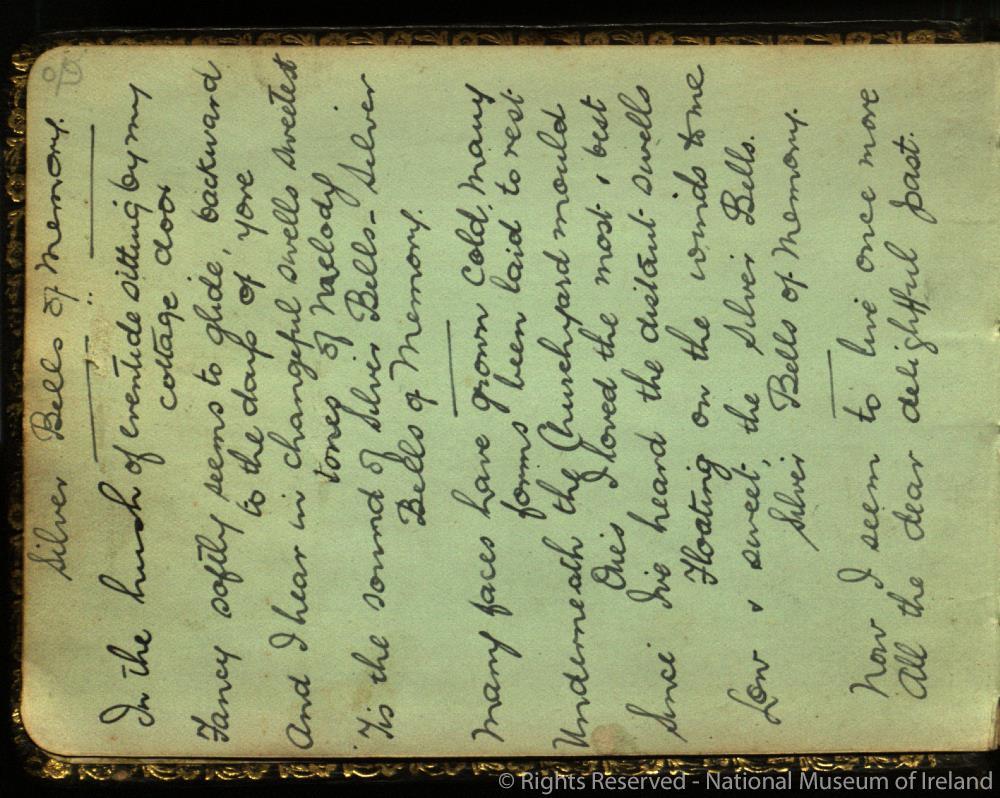 Silver Bells of Memory.
In the hush of eventide sitting by my
cottage door
Fancy softly seems to glide, backward
to the days of yore
And I hear in changeful swells sweetest
tones of melody
'Tis the sound of Silver Bells - Silver
Bells of Memory.
Many faces have grown cold, many
forms been laid to rest.
Underneath the Churchyard mould
One's I loved the most & best
Since I've heard the distant swells
Floating on the winds to me
Low & sweet, the Silver Bells.
Silver Bells of Memory.
Now I seem to live once more
All the dear delightful past.
© Rights Reserved - National Museum of Ireland